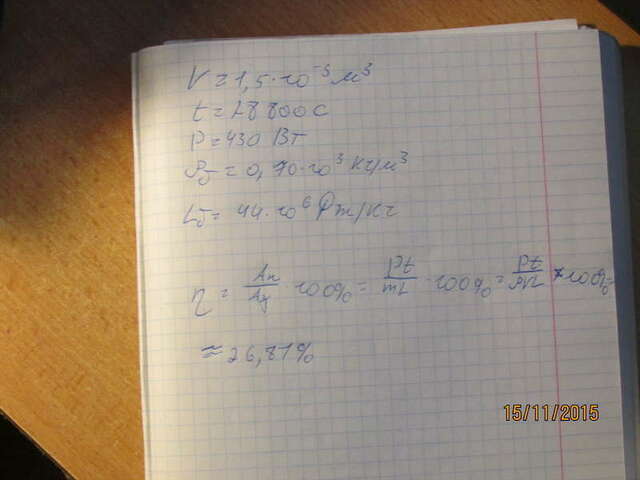 V = 1,5·10⁻³ м³
t = 28800 с
P = 430 Вт
ρб = 0,70·10³ кг/м³
Lб = 44·10⁶ Дж/кг
η = Aп/Aз · 100% = Pt/mL · 100% = Pt/ρVL × 100%
≈ 26,81%
15/11/2015